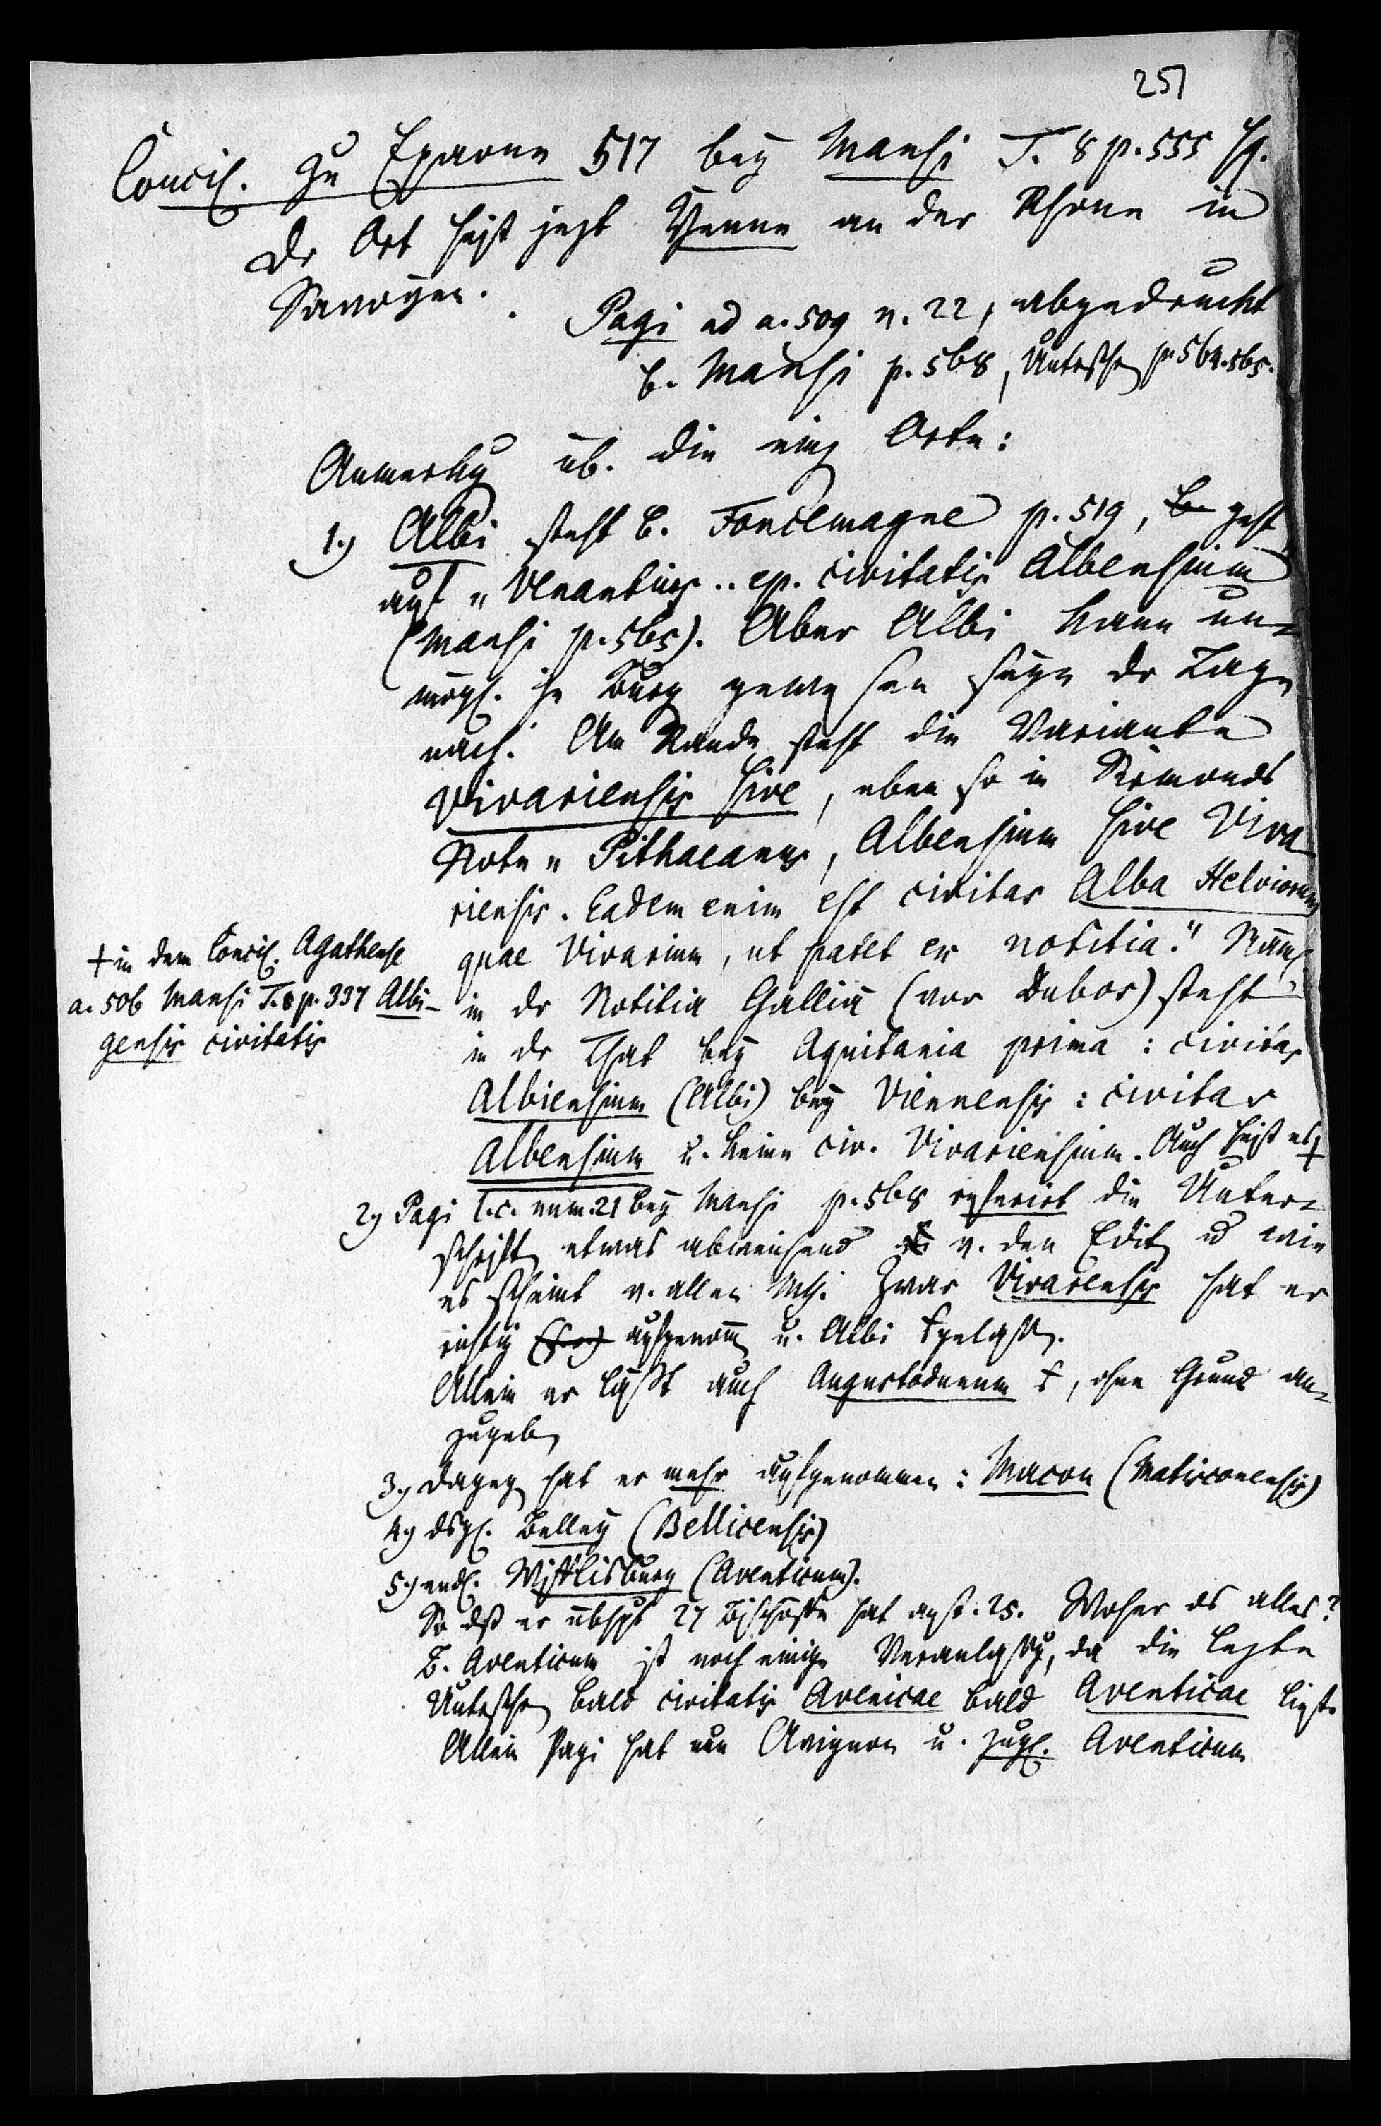 251
Concil. zu Epaone 517 bey Mansi T. 8 p. 555 sq.
Dr Ort heißt jezt Yenne an der Rhone in
Savoyen.
Pagi ad a. 509 n. 22, abgedruckt
b. Mansi p. 568, Untersch p. 564. 565.
Anmerkg üb. die einz Orte:
1.) Albi steht b. Foncemagne p. 519, geht
auf „Venantius .. ep. civitatis Albensium
(Mansi p. 565). Aber Albi kann un-
mögl. zu Burg gewesen seyn dr Lage
nach. Am Rande steht die Variante
Vivariensis sive, eben so in Sirmonds
Note „Pithaeanus, Albensium sive Viva
riensis. Eadem enim est civitas Alba Helviorum
quae Vivarium, ut patet ex notitia." Näml
in dr Notitia Galliä (vor Dubos) steht
in dr That bey Aquitania prima: civitas
Albiensium (Albi) bey Viennensis: civitas
Albensium u. keine civ. Vivariensium. Auch heißt es +
+ in dem Concil. Agathense
a. 506 Mansi T. 8 p. 337 Albi-
gensis civitatis
2.) Pagi l. c. num. 21 bey Mansi p. 568 referirt die Unter-
schrift etwas abweichend v. den Edit u wie
es scheint v. allen Mss. Zwar Vivariensis hat er
richtig aufgenom u. Albi gelass.
Allein er läßt auch Augustodunum, ohne Grund an-
zugeb
3.) Dageg hat er mehr aufgenommen: Macon (Matisconensis)
4.) dsgl. Belley (Bellicensis)
5.) endl. Wifflisburg (Aventicum).
So dß er übhpt 27 Bischöffe hat anst. 25. Woher ds alles?
B. Aventicum ist noch einige Veranlassg, da die lezte
Untersch bald civitatis Avenicae bald Aventicae liest.
Allein Pagi hat nun Avignon u. zugl. Aventicum